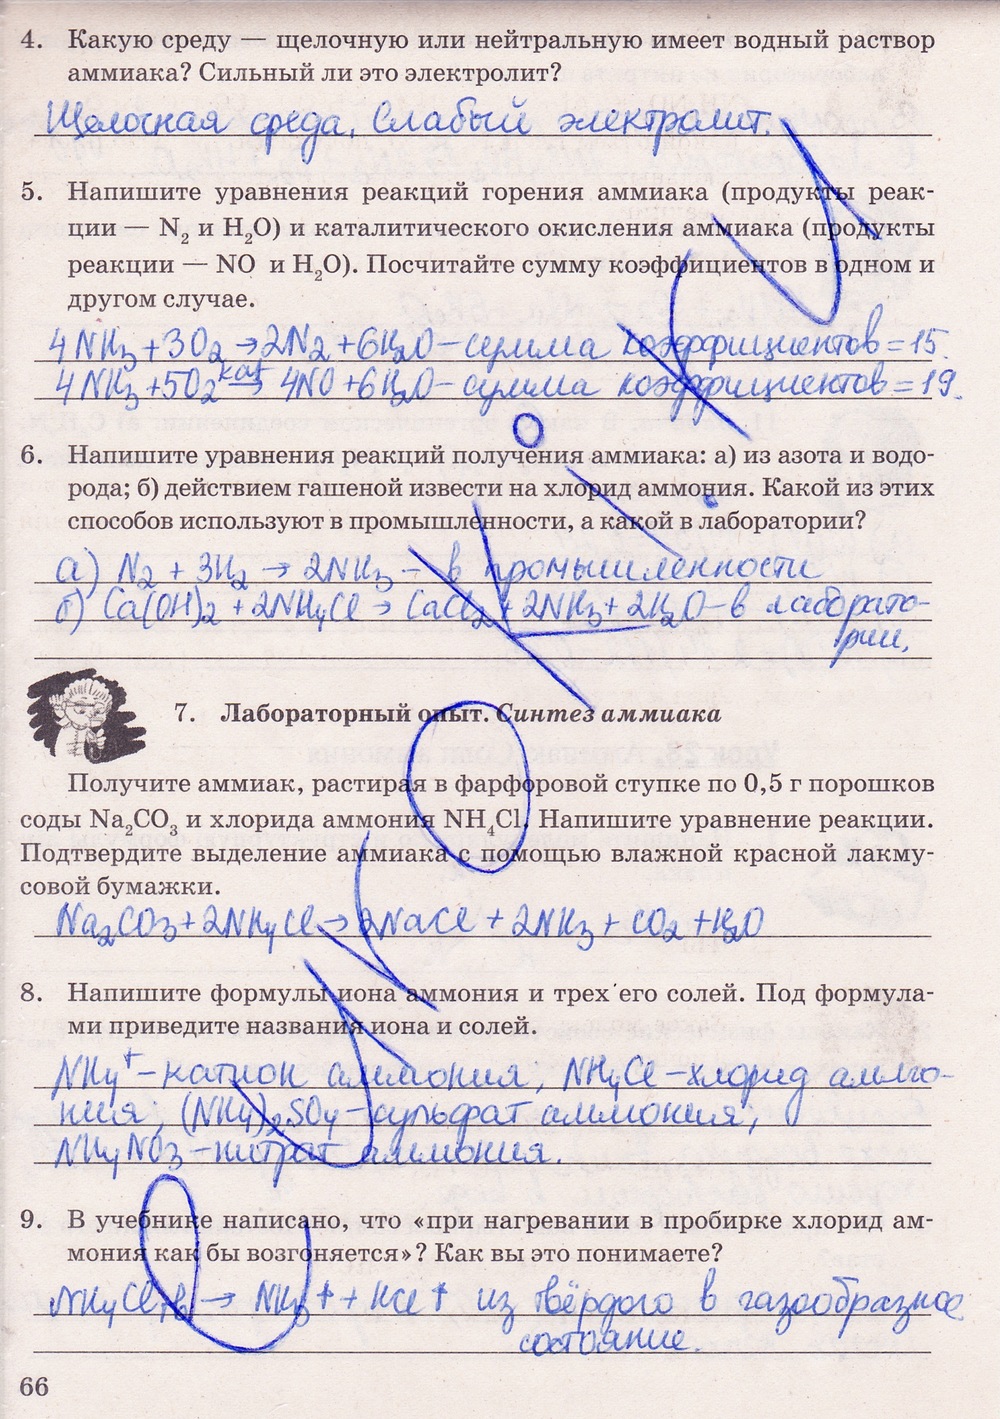 4. Какую среду — щелочную или нейтральную имеет водный раствор
аммиака? Сильный ли это электролит?
Щелочная среда, Слабый электролит.
5. Напишите уравнения реакций горения аммиака (продукты реак-
ции — N₂ и H₂O) и каталитического окисления аммиака (продукты
реакции — NO и H₂O). Посчитайте сумму коэффициентов в одном и
другом случае.
4NH₃+3O₂→2N₂+6H₂O-сумма коэффициентов=15.
4NH₃+5O₂ кат→ 4NO+6H₂O-сумма коэффициентов=19.
6. Напишите уравнения реакций получения аммиака: а) из азота и водо-
рода; б) действием гашеной извести на хлорид аммония. Какой из этих
способов используют в промышленности, а какой в лаборатории?
а) N₂ + 3H₂ → 2NH₃ - в промышленности
б) Ca(OH)₂+2NH₄Cl → CaCl₂+2NH₃+2H₂O-в лаборато-
рии.
7. Лабораторный опыт. Синтез аммиака
Получите аммиак, растирая в фарфоровой ступке по 0,5 г порошков
соды Na₂CO₃ и хлорида аммония NH₄Cl. Напишите уравнение реакции.
Подтвердите выделение аммиака с помощью влажной красной лакму-
совой бумажки.
Na₂CO₃+2NH₄Cl→2NaCl + 2NH₃ + CO₂ +H₂O
8. Напишите формулы иона аммония и трех его солей. Под формула-
ми приведите названия иона и солей.
NH₄⁺-катион аммония; NH₄Cl-хлорид аммо-
ния; (NH₄)₂SO₄-сульфат аммония;
NH₄NO₃-нитрат аммония.
9. В учебнике написано, что «при нагревании в пробирке хлорид ам-
мония как бы возгоняется»? Как вы это понимаете?
NH₄Cl тв → NH₃↑ + HCl↑ из твёрдого в газообразное
состояние.
66